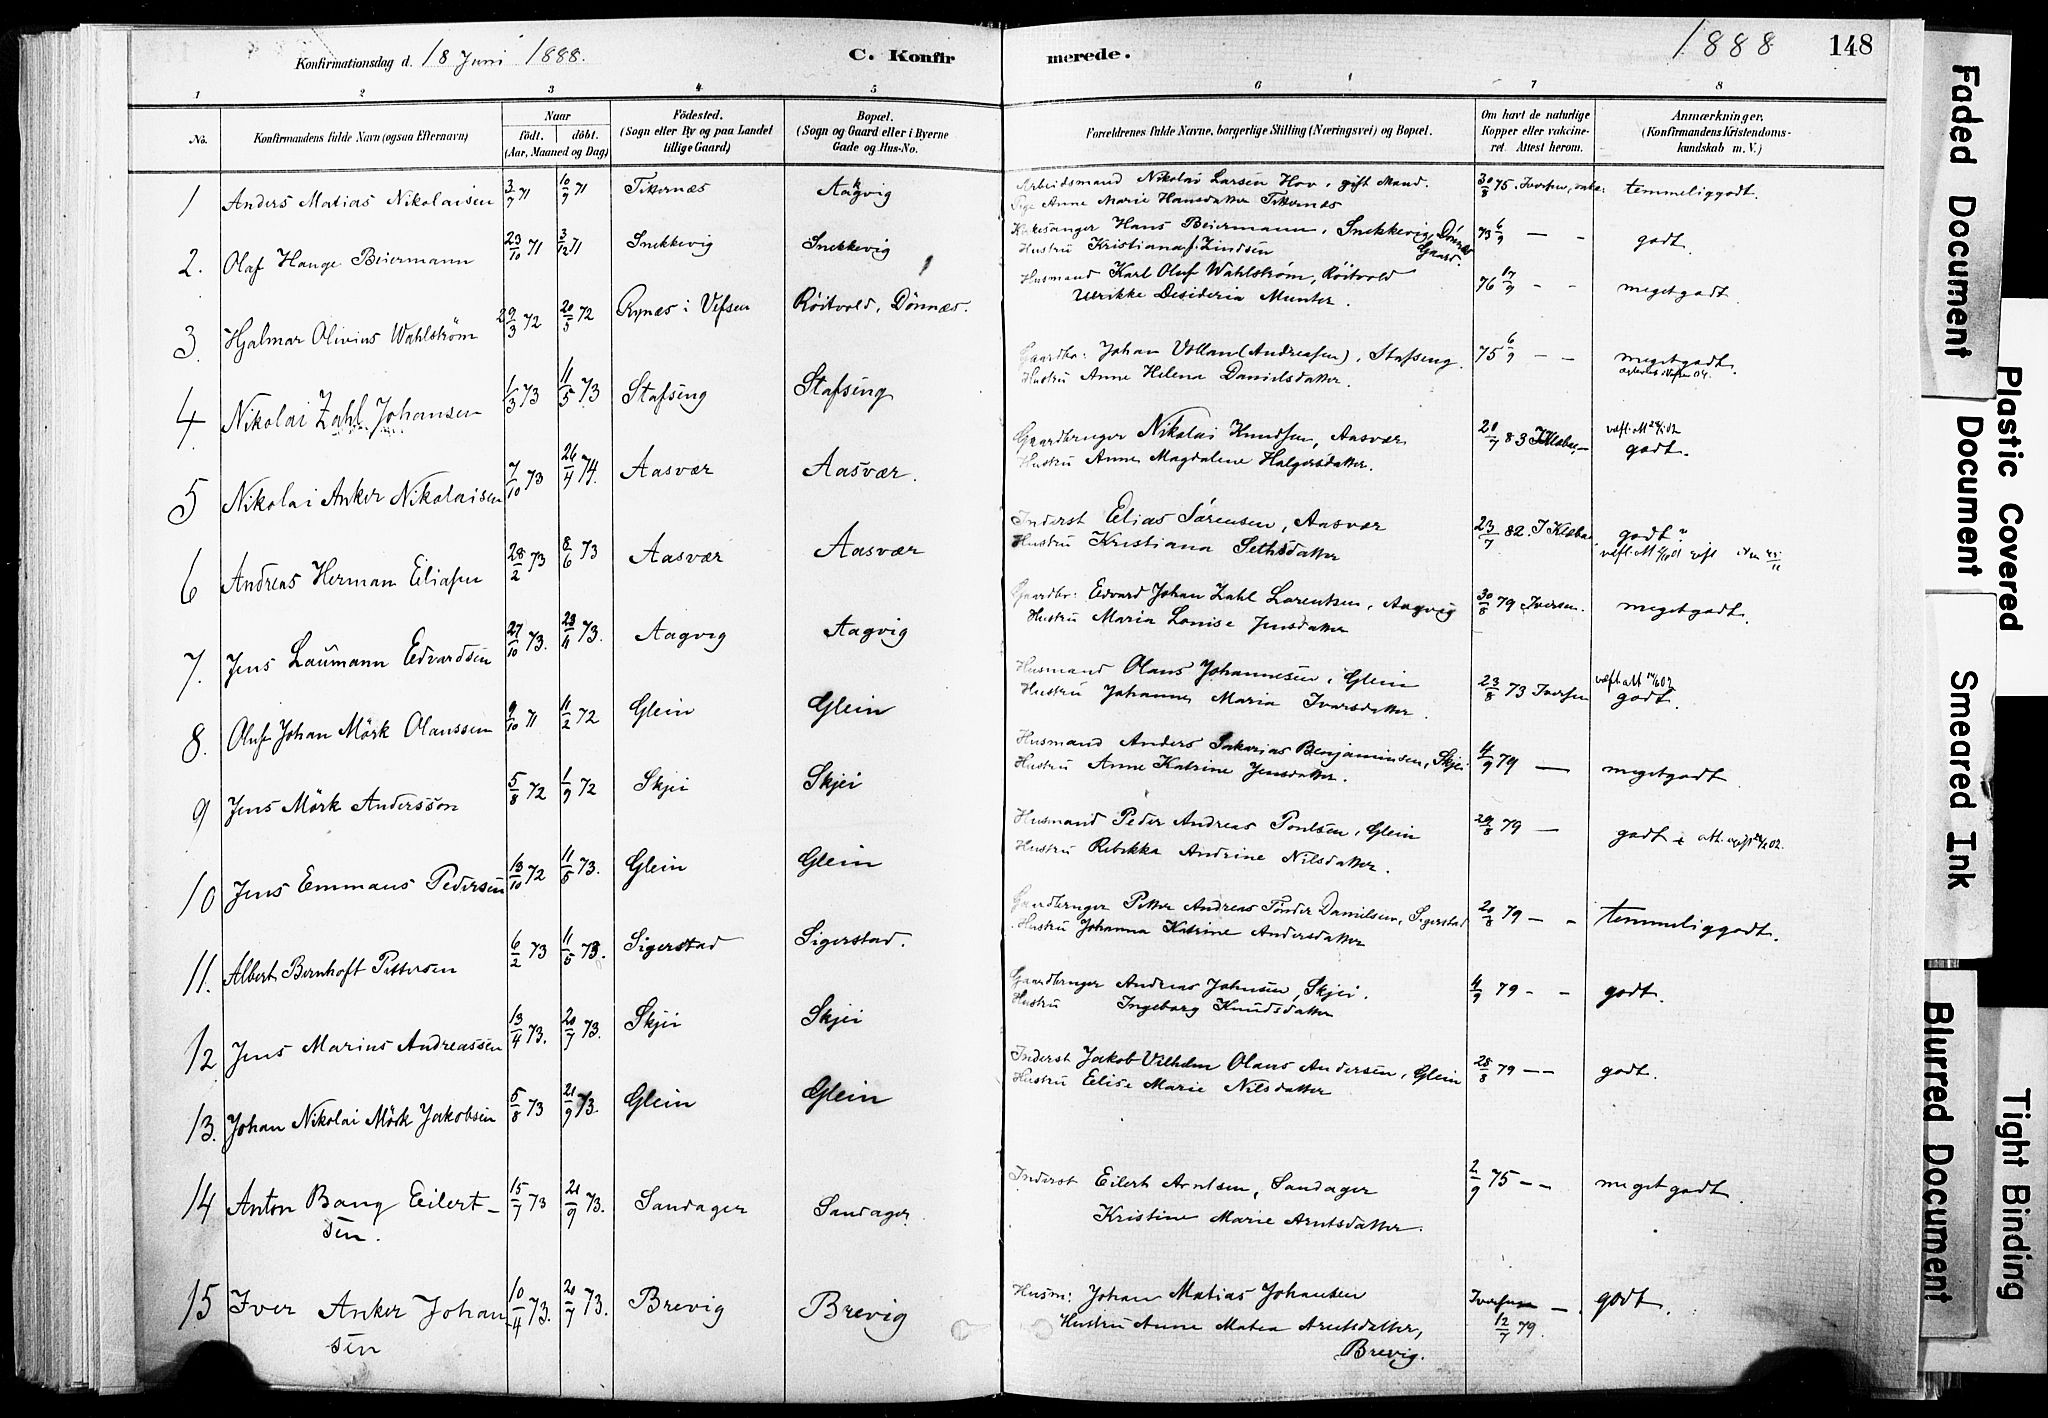 Konfirmationsdag d. 18 Juni 1888. C. Konfirmerede. 1888 148
1 2 3 4 5 6 7 8
No. Konfirmandens fulde Navn (ogsaa Efternavn) Naar født. døbt. (Aar, Maaned og Dag) Födested. (Sogn eller By og paa Landet tillige Gaard) Bopæl. (Sogn og Gaard eller i Byerne Gade og Hus-No. Forældrenes fulde Navne, borgerlige Stilling (Næringsvei) og Bopæl. Om havt de naturlige Kopper eller vakcineret. Attest herom. Anmærkninger. (Konfirmandens Kristendomskundskab m. V.)
1 Anders Matias Nikolaisen 3/7 71 10/9 71 Titternæs Aakvig Arbeidsmand Nikolai Larsen Hov, gift Mand. 30/8 75 Iversen, temmeliggodt.
Pige Anne Marie Hansdatter Titternæs
2. Olaf Hauge Beiermann 23/10 71 3/12 71 Snekkevig Snekkevig Kirkesanger Hans Beiermann, Snekkevig, Dönnes Gaard. 73 6/9 — - godt.
Hustru Kristiana f. Zindsen
3. Hjalmar Olivius Wahlström 29/3 72 20/5 72 Rynæs i Vefsen Röitvold, Dönnæs. Husmand Karl Oluf Wahlström, Röitvold 76 17/9 - - megetgodt.
Ulrikke Desideria Munter.
4 Nikolai Zahl Johansen 1/3 73 11/5 73 Stafseng Stafseng Gaardbr: Johan Volland (Andreassen), Stafseng. 75 6/9 — - megetgodt.
Hustru Anne Helena Danielsdatter.
5 Nikolai Anker Nikolaisen 7/10 73 26/4 74. Aasvær Aasvær. Gaardbruger Nikolai Knudsen, Aasvær 20/7 83 J Klæboe,- godt.
Hustru Anne Magdalene Halgersdatter.
6 Andreas Herman Eliassen 28/2 73 8/6 73 Aasvær Aasvær Inderst Elias Sörensen, Aasvær 23/7 82 J Klæboe godt
Hustru Kristiana Sethsdatter
7. Jens Laumann Edvardsen 27/10 73. 23/4 73. Aagvig Aagvig Gaardbr: Edvard Johan Zahl Lorentsen, Aagvig 30/8 79 Iversen. megetgodt.
Hustru Maria Lovise Jensdatter
8. Oluf Johan Mörk Olaussen 9/10 71 11/2 72 Glein Glein Husmand Olaus Johannesen, Glein 23/8 73 Iversen godt.
Hustru Johanna Maria Ivarsdatter.
9 Jens Mörk Andersson 5/8 72 1/9 72 Skjei Skjei Husmand Anders Sakarias Benjaminsen, Skjei 4/9 79 — megetgodt
Hustru Anne Katrine Jensdatter.
10 Jens Emmaus Pedersen 13/10 72 11/5 73. Glein Glein Husmand Peder Andreas Poulsen, Glein 29/8 79 — godt
Hustru Rebekka Andrine Nilsdatter.
11. Albert Bernhoft Pettersen 6/2 73 11/5 73. Sigerstad Sigerstad. Gaardbruger Petter Andreas Tønder Danielsen, Sigerstad 20/8 79 — - temmeliggodt.
Hustru Johanna Katrine Andersdatter
12 Jens Marius Andreassen 13/4 73. 20/7 73. Skjei Skjei Gaardbruger Andreas Johnsen, Skjei. 4/9 79 - - godt.
Hustru Ingeborg Knudsdatter
13. Johan Nikolai Mörk Jakobsen 5/8 73 21/9 73. Glein Glein Inderst Jakob Vilhelm Olaus Andersen, Glein 28/8 79 -- godt.
Hustru Elise Marie Nilsdatter
14 Anton Bang Eilertsen. 15/7 73 21/9 73. Sandager Sandager. Inderst Eilert Arntsen, Sandager 2/9 75 -- megetgodt.
Kristine Marie Arntsdatter.
15 Iver Anker Johansen 10/4 73. 20/7 73. Brevig Brevig Husm: Johan Matias Johansen Iversen 12/7 79. — godt.
Hustru Anne Matea Arntsdatter,
Brevig.
Faded Document
Plastic Covered Document
Smeared Ink
Blurred Document
Tight Binding